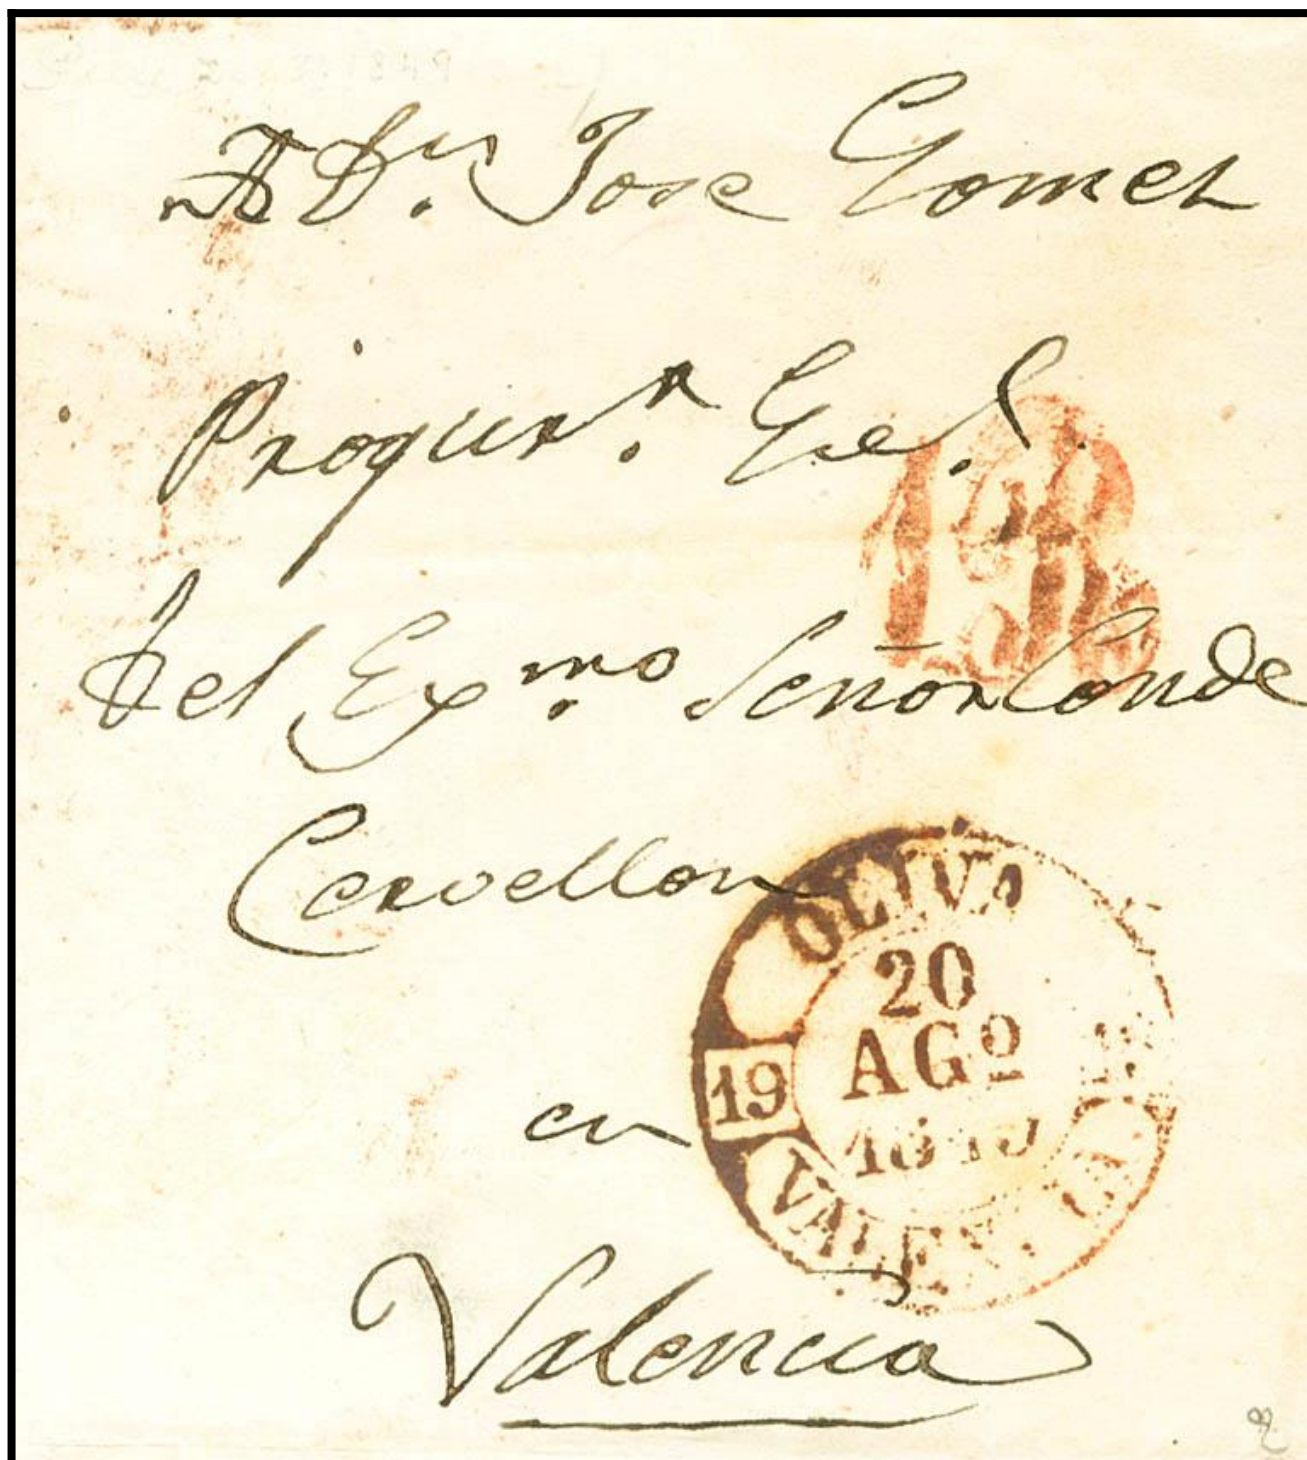 A Dn. Jose Gomez
Proqur.r Gel.
del Exmo. Señor Conde
Cervellon
OLIVA
20
AGº
19
en
VALENCIA
Valencia